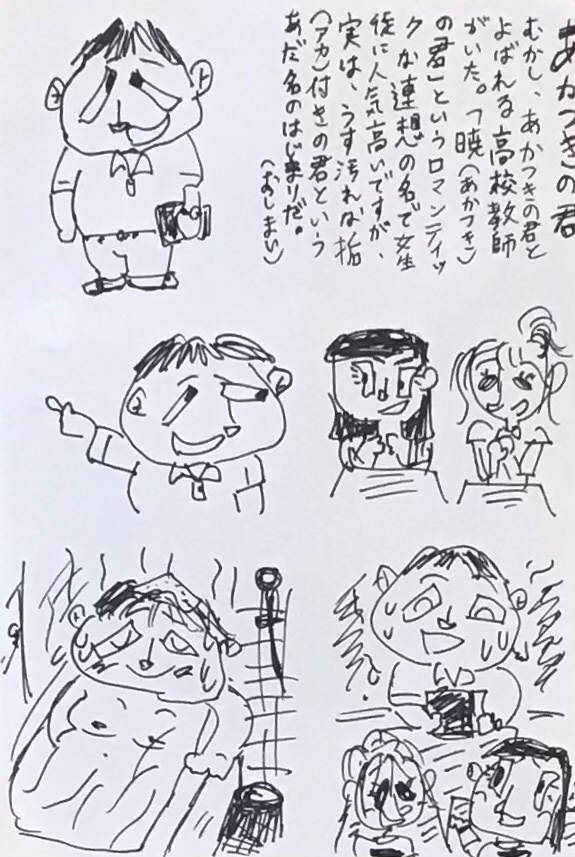 あかつきの君
むかし、あかつきの君と
よばれる高校教師
がいた。「暁(あかつき)
の君」というロマンティッ
クな連想の名で女生
徒に人気高いですが、
実は、うす汚れな垢
(アカ)付きの君という
あだ名のはじまりだ。
(おしまい)